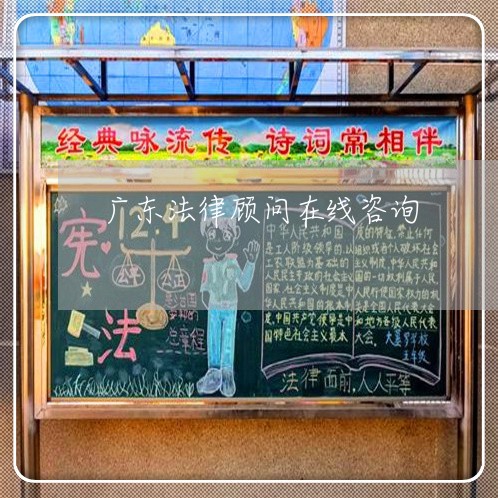 经典咏流传 诗词常相伴
广东法律顾问在线咨询
12.4
宪
法
公平
公正
总章程
中华人民共和国
是工人阶级领导的、以
工农联盟为基础的
人民民主专政的社会主义
国家。社会主义制度是中
华人民共和国的根本制
度。中国共产党领导是中
国特色社会主义最本
质的特征。禁止任何
组织或者个人破坏社会
主义制度。中华人民共和
国的一切权利属于人民。
人民行使国家权力的机
关是全国人民代表大会
和地方各级人民代表
大会。
学校
五年级
法律面前,人人平等